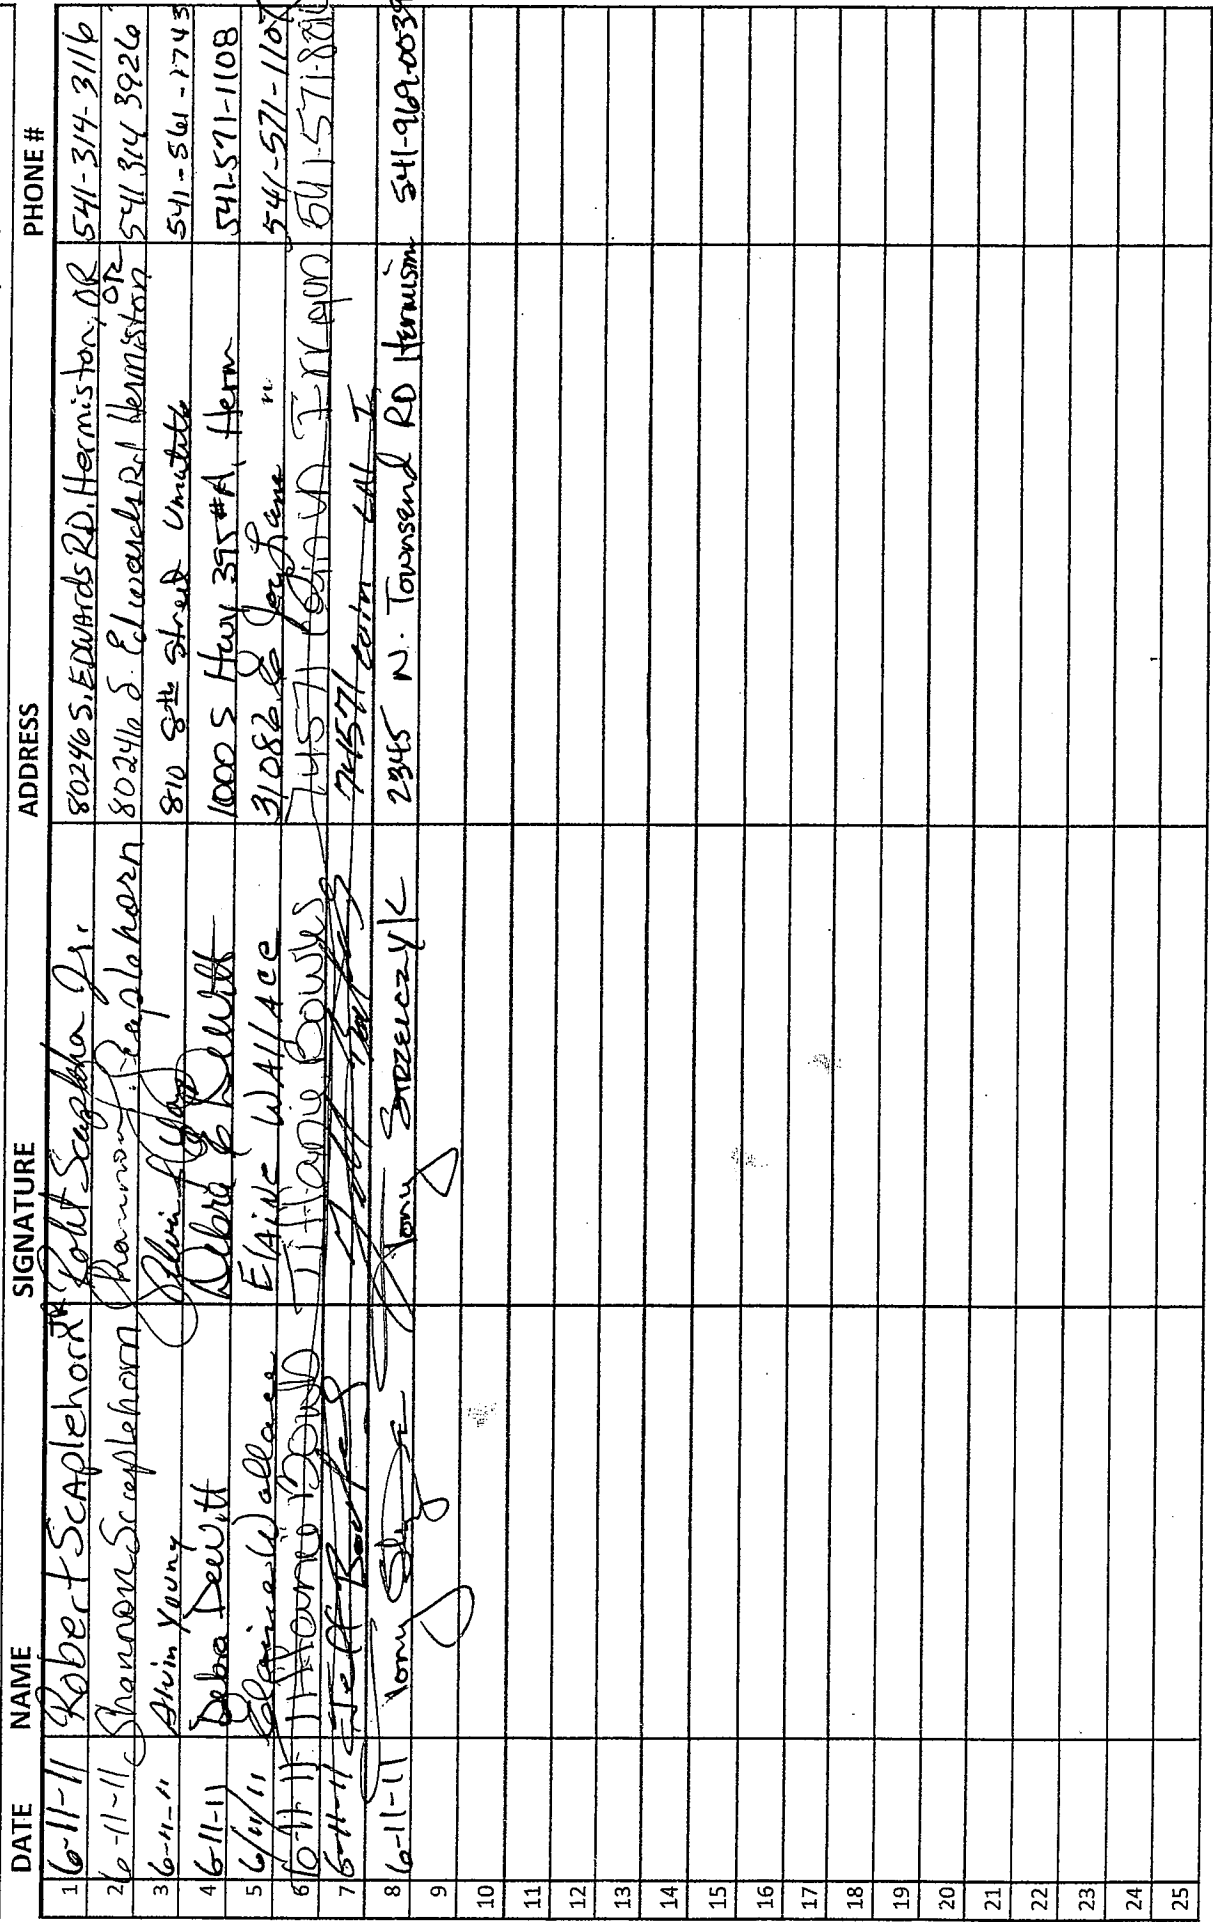 DATE NAME SIGNATURE ADDRESS PHONE #
1 6-11-11 Robert Scaplehorn JR. Robt Scaplehorn Jr. 80246 S. EDWARDS RD. Hermiston, OR 541-314-3116
2 6-11-11 Shannon Scaplehorn Shannon Scaplehorn 80246 S. Edwards Rd Hermiston OR 541 314 3926
3 6-11-11 Alvin Young 810 8th Street Umatilla 541-561-1743
4 6-11-11 Debra DeWitt Debra DeWitt 1000 S Hwy 395 #A, Herm 541-571-1108
5 6/11/11 Elaine Wallace ElAiNe WAllAce 31086 Joy Lane " 541-571-1107
6 6-11-11 Tiffanie Bowles Tiffanie Bowles Irrigon
7 6-11-11 Jeff Bowles Jeff 74571
8 6-11-11 Tony Tony STRZELCZYK 2345 N. Townsend RD Hermiston 541-969-0039
9
10
11
12
13
14
15
16
17
18
19
20
21
22
23
24
25